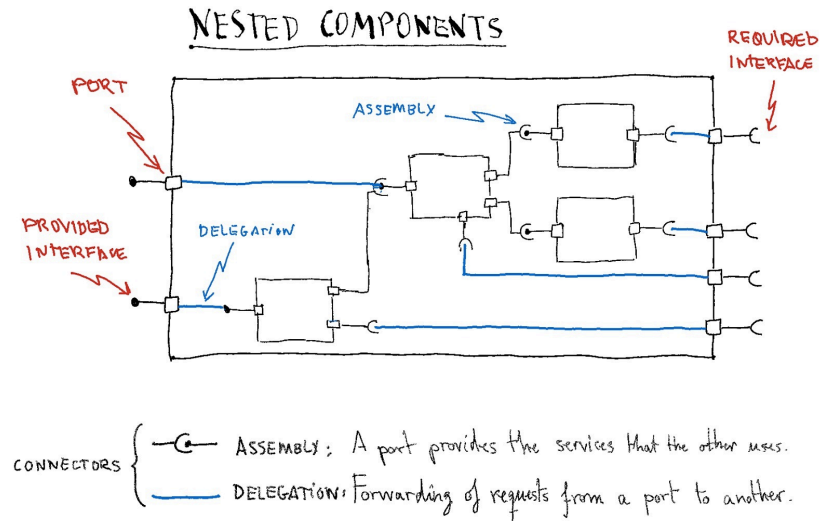 NESTED COMPONENTS
REQUIRED
INTERFACE
PORT
ASSEMBLY
PROVIDED
INTERFACE
DELEGATION
CONNECTORS
ASSEMBLY: A port provides the services that the other uses.
DELEGATION: Forwarding of requests from a port to another.